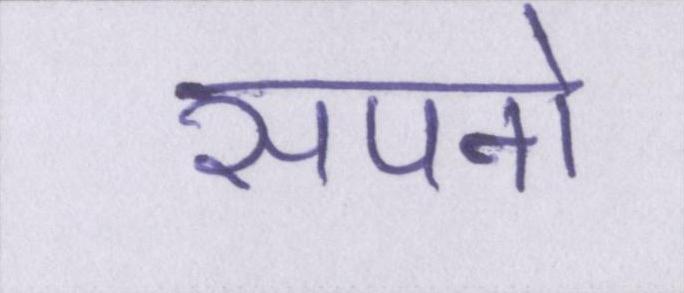 सपनो